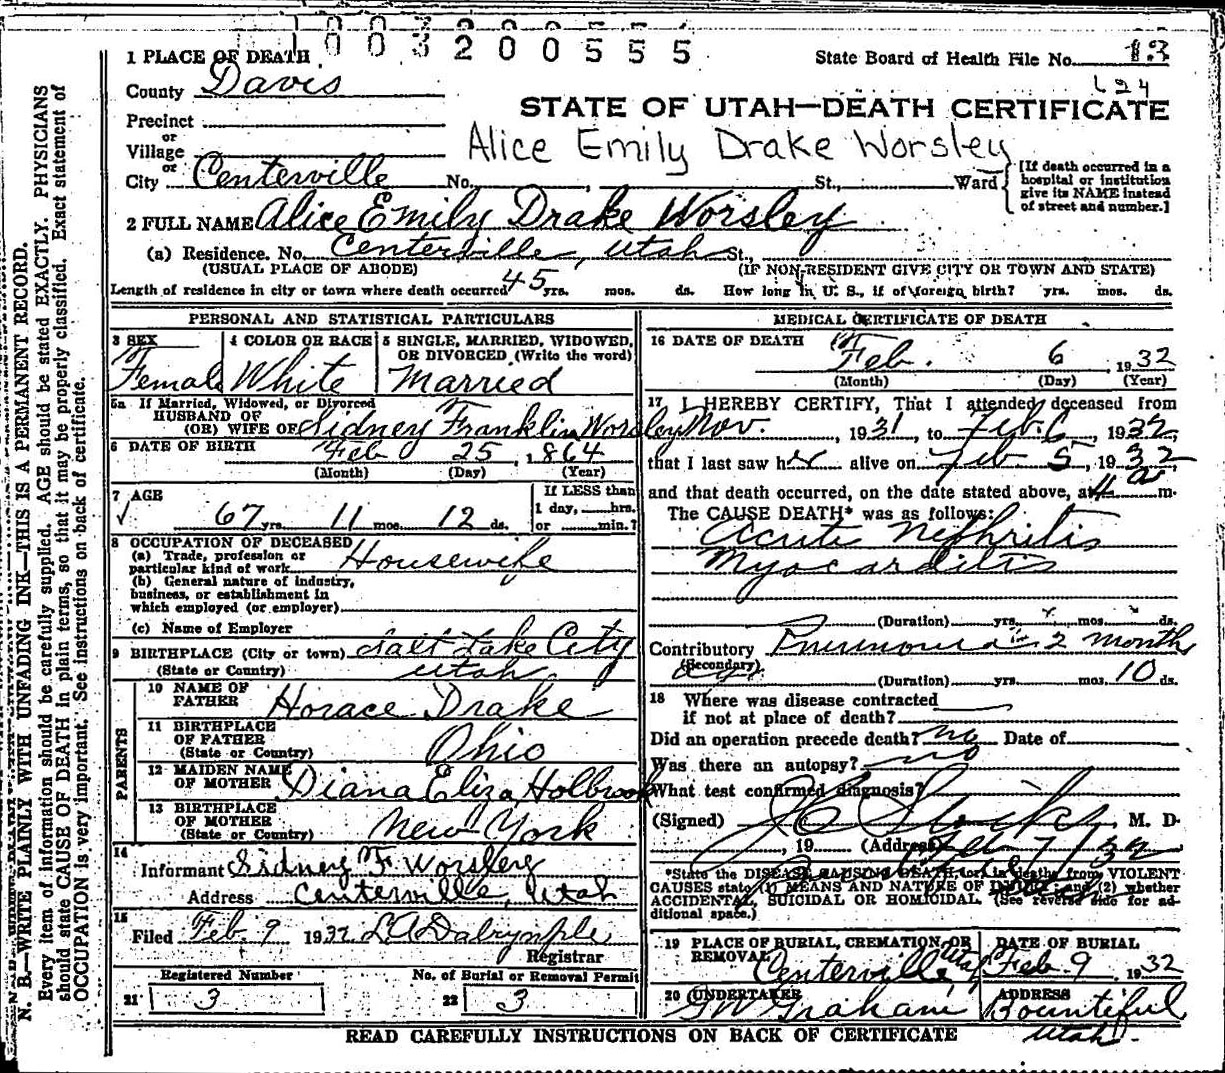 1003200555
1 PLACE OF DEATH
State Board of Health File No. 13
County Davis
L 24
STATE OF UTAH—DEATH CERTIFICATE
Precinct
or
Village
Alice Emily Drake Worsley
or
City Centerville No. , St., Ward
[If death occurred in a hospital or institution give its NAME instead of street and number.]
2 FULL NAME Alice Emily Drake Worsley
(a) Residence. No. Centerville, Utah St.,
(USUAL PLACE OF ABODE) (IF NON-RESIDENT GIVE CITY OR TOWN AND STATE)
Length of residence in city or town where death occurred 45 yrs. mos. ds. How long in U. S., if of foreign birth? yrs. mos. ds.
PERSONAL AND STATISTICAL PARTICULARS
3 SEX 4 COLOR OR RACE 5 SINGLE, MARRIED, WIDOWED,
OR DIVORCED (Write the word)
Female White Married
5a If Married, Widowed, or Divorced
HUSBAND OF
(OR) WIFE OF Sidney Franklin Worsley
6 DATE OF BIRTH Feb 25, 1864
(Month) (Day) (Year)
7 AGE
If LESS than
1 day, hrs.
67 yrs. 11 mos. 12 ds. or min.?
8 OCCUPATION OF DECEASED
(a) Trade, profession or
particular kind of work Housewife
(b) General nature of industry,
business, or establishment in
which employed (or employer)
(c) Name of Employer
9 BIRTHPLACE (City or town) Salt Lake City
(State or Country) Utah
PARENTS
10 NAME OF
FATHER Horace Drake
11 BIRTHPLACE
OF FATHER
(State or Country) Ohio
12 MAIDEN NAME
OF MOTHER Diana Eliza Holbrook
13 BIRTHPLACE
OF MOTHER
(State or Country) New York
14
Informant Sidney F Worsley
Address Centerville, Utah
15
Filed Feb. 9 1932 L A Dalrymple
Registrar
Registered Number No. of Burial or Removal Permit
21 3 22 3
MEDICAL CERTIFICATE OF DEATH
16 DATE OF DEATH Feb. 6, 1932
(Month) (Day) (Year)
17 I HEREBY CERTIFY, That I attended deceased from
Nov. , 1931, to Feb. 6, 1932,
that I last saw her alive on Feb 5, 1932,
and that death occurred, on the date stated above, at 4 a m.
The CAUSE DEATH* was as follows:
Acute Nephritis
Myocarditis
(Duration) yrs. mos. ds.
Contributory Pneumonia in 2 month
(Secondary)
(Duration) yrs. mos. 10 ds.
18 Where was disease contracted
if not at place of death?
Did an operation precede death? no Date of
Was there an autopsy? no
What test confirmed diagnosis?
(Signed) , M. D.
, 19 (Address) Feb 7/32
*State the DISEASE CAUSING DEATH, or in deaths from VIOLENT
CAUSES state (1) MEANS AND NATURE OF INJURY; and (2) whether
ACCIDENTAL, SUICIDAL OR HOMICIDAL. (See reverse side for additional space.)
19 PLACE OF BURIAL, CREMATION, OR
REMOVAL Centerville Utah
DATE OF BURIAL
Feb 9, 1932
20 UNDERTAKER ADDRESS
GW Graham Bountiful
Utah.
READ CAREFULLY INSTRUCTIONS ON BACK OF CERTIFICATE
N. B.—WRITE PLAINLY WITH UNFADING INK—THIS IS A PERMANENT RECORD.
Every item of information should be carefully supplied. AGE should be stated EXACTLY. PHYSICIANS
should state CAUSE OF DEATH in plain terms, so that it may be properly classified. Exact statement of
OCCUPATION is very important. See instructions on back of certificate.